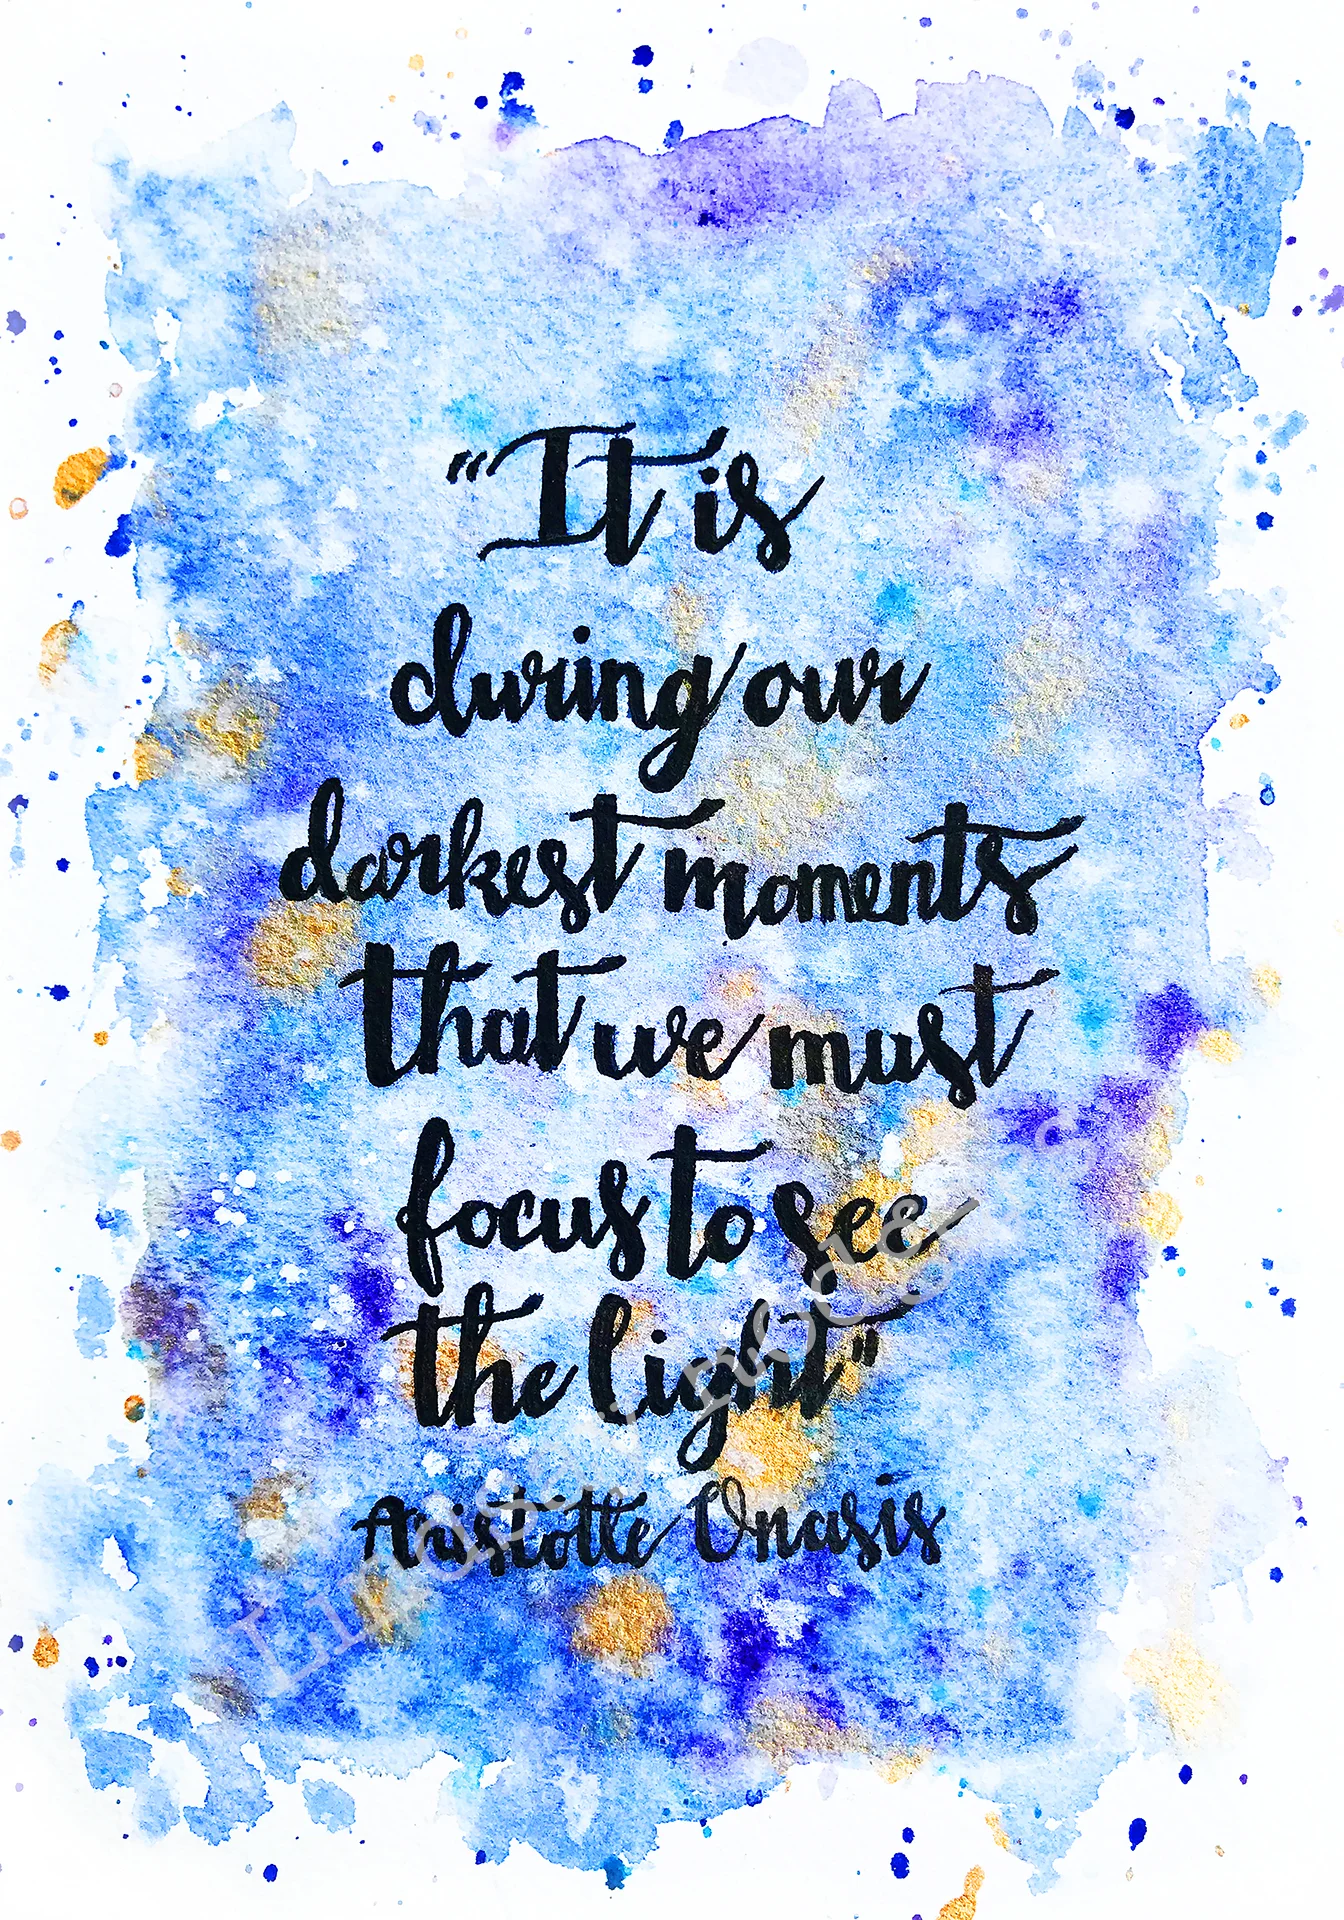 "It is
during our
darkest moments
that we must
focus to see
the light"
Aristotle Onasis